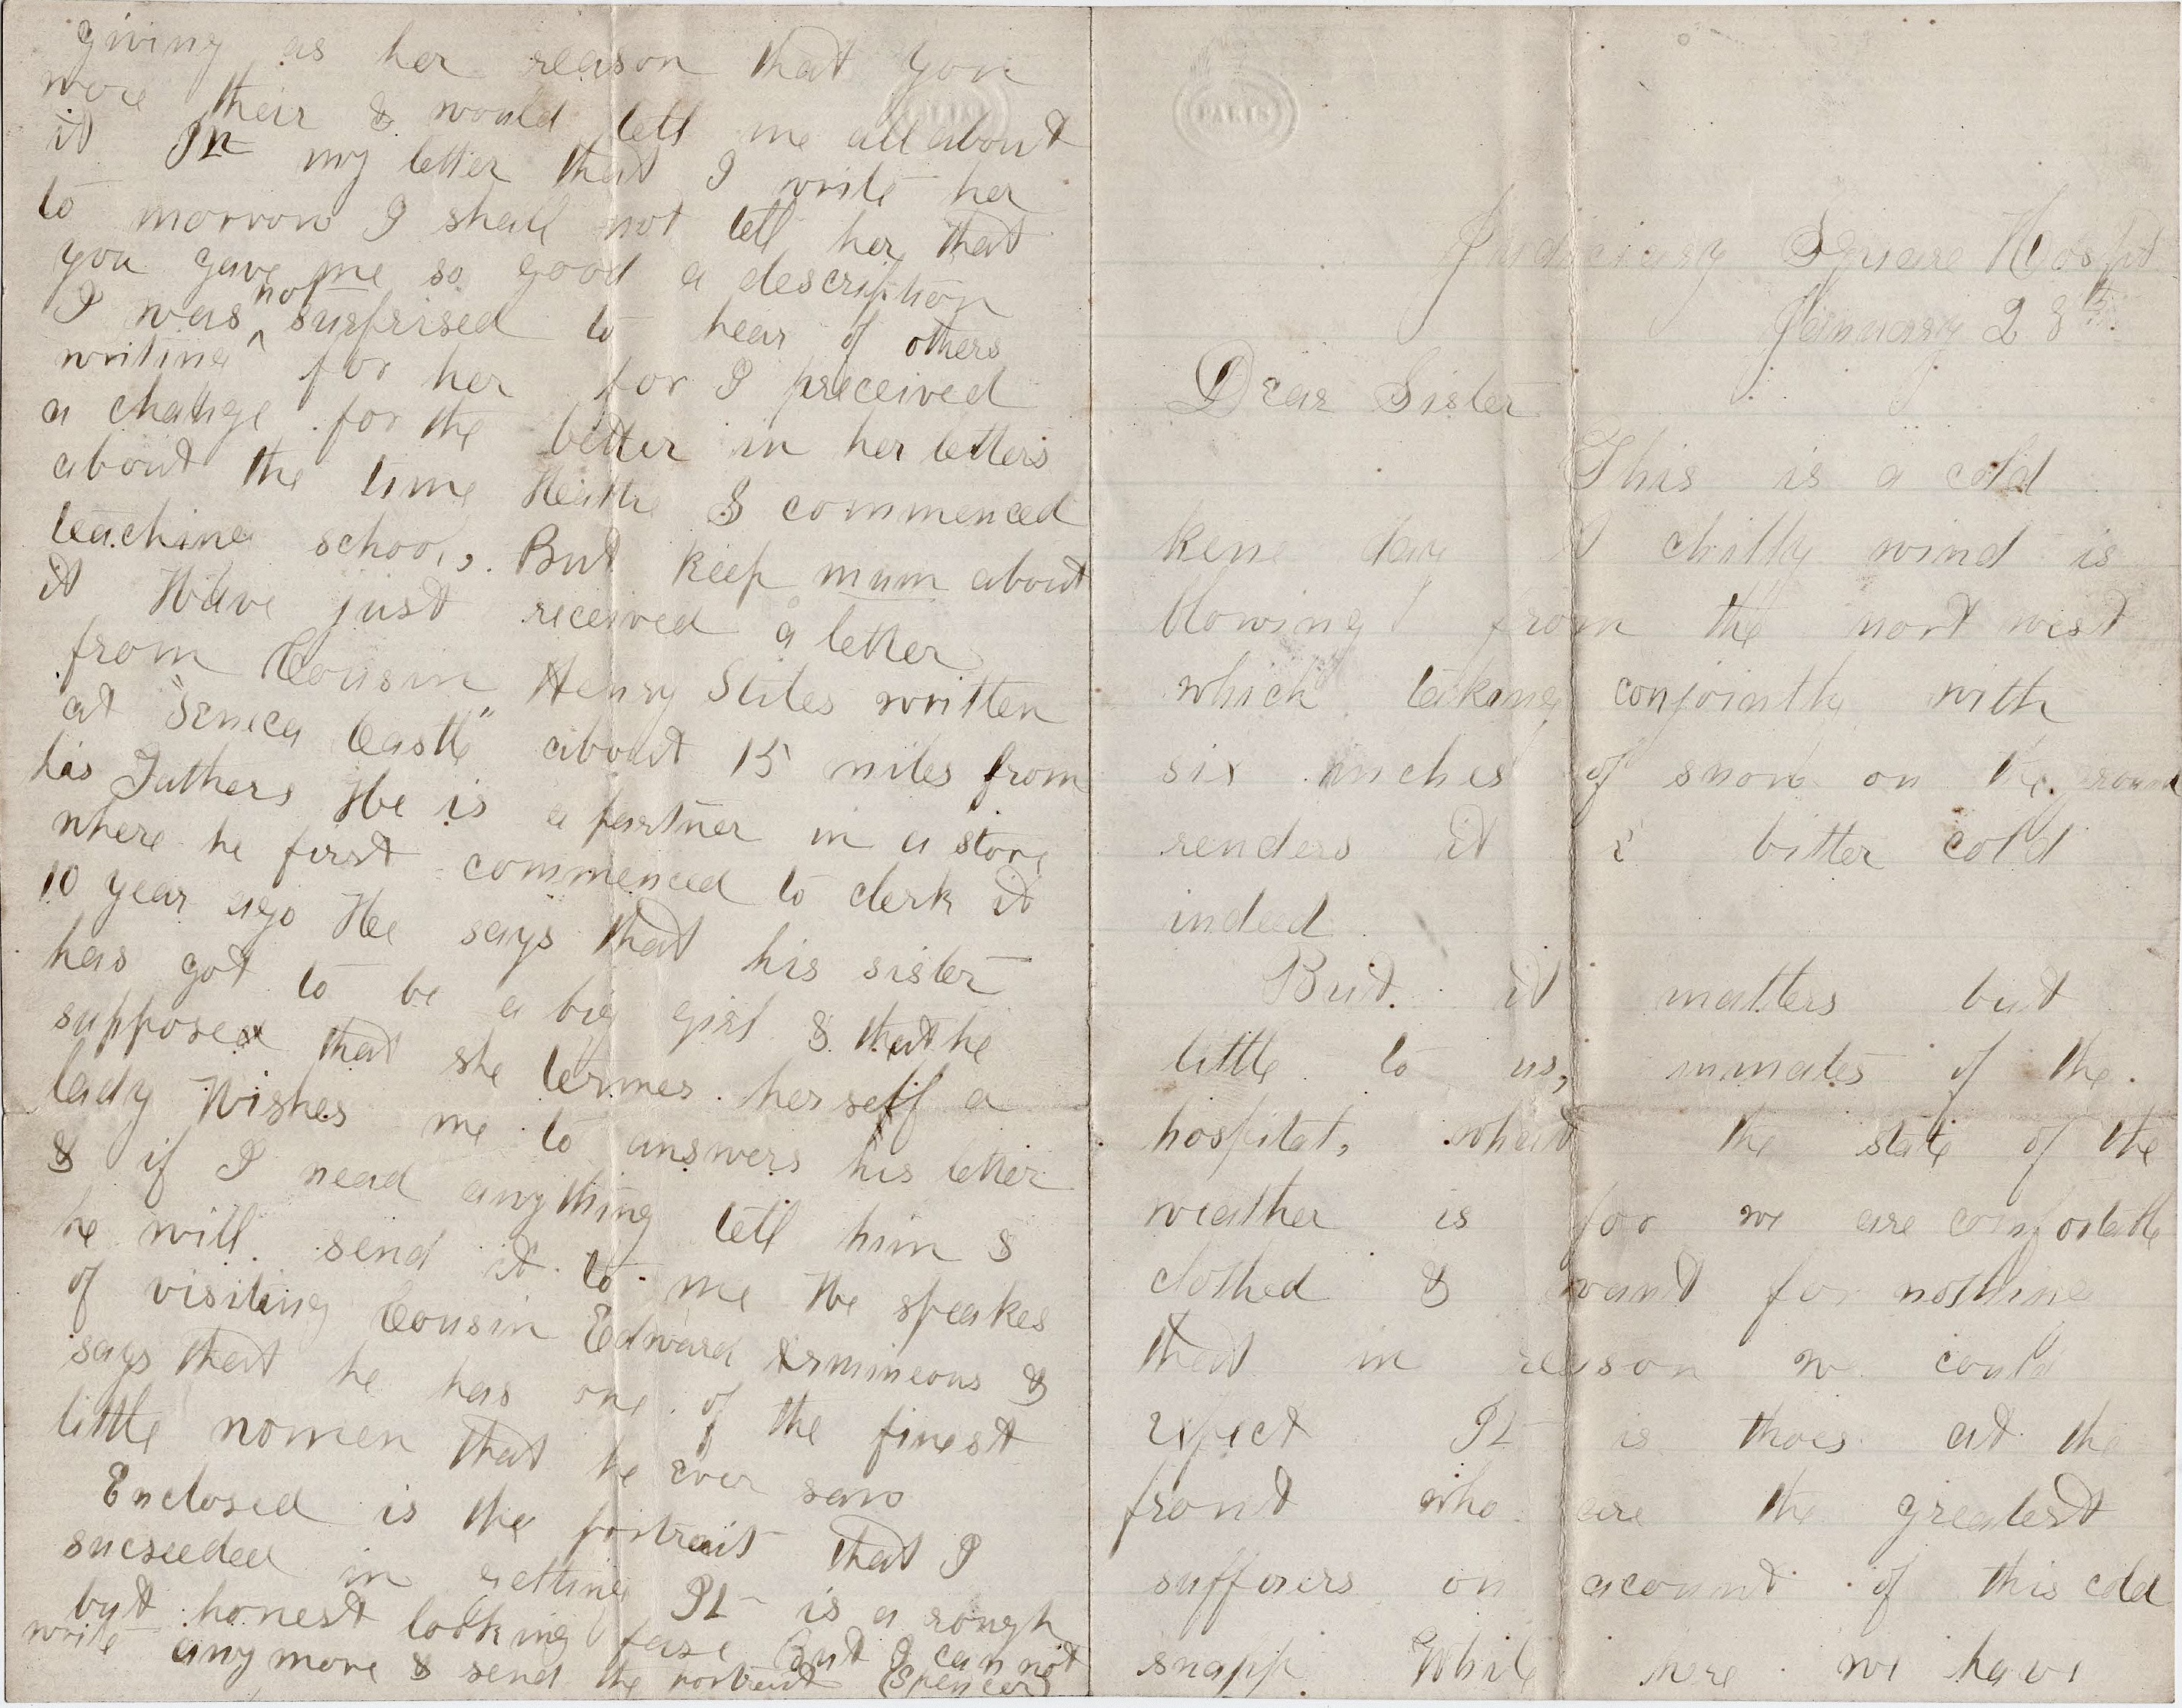 giving as her reason that you
were their & would tell me all about
it In my letter that I write her
to morrow I shall not tell her that
you gave me so good a description
I was not surprised to hear of others
writing for her for I preceived
a change for the better in her letters
about the time S commenced
teaching school. But keep mum about
it Have just received a letter
from Cousin Henry Stiles written
at "Seneca Castle" about 15 miles from
his Fathers He is a partner in a store
where he first commenced to clerk it
10 year ago He says that his sister
has got to be a big girl & that he
supposes that she termes herself a
lady Wishes me to answers his letter
& if I nead anything tell him &
he will send it to me He speakes
of visiting Cousin Edward &
says that he has one of the finest
little women that he ever saw
Enclosed is the portrait that I
sucseeded in getting It is a rough
but honest looking fase But I can not
write any more & send the portrait (Spencer)
PARIS
Judiciary Square Hospt
January 28th
Dear Sister
This is a cold
kene day A chilly wind is
blowing from the nort west
which taking conjointly with
six inches of snow on the ground
renders it bitter cold
indeed
But it matters but
little to us, inmates of the
hospital, what the state of the
weather is for we are comfortable
clothed & want for nothing
that in reason we could
expect It is thoes at the
front who are the greatest
sufferers on acount of this cold
snapp. While here we have